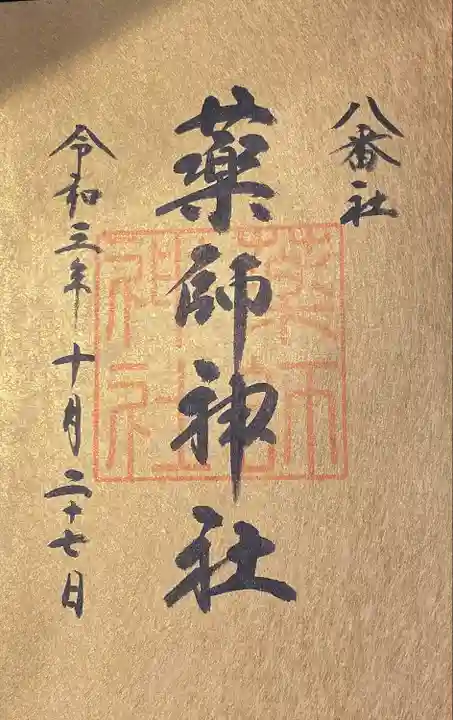 八番社
薬師神社
令和三年十月二十七日